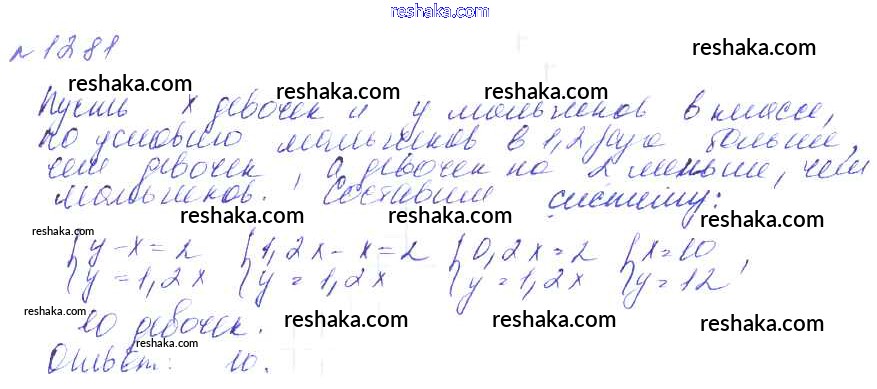 reshaka.com
№1281 reshaka.com
reshaka.com reshaka.com reshaka.com
Пусть x девочек и y мальчиков в классе,
по условию мальчиков в 1,2 раза больше,
чем девочек, а девочек на 2 меньше, чем
мальчиков. Составим систему:
reshaka.com reshaka.com reshaka.com
reshaka.com
{y-x=2 {1,2x-x=2 {0,2x=2 {x=10
{y=1,2x {y=1,2x {y=1,2x {y=12,
reshaka.com reshaka.com reshaka.com
10 девочек.
reshaka.com reshaka.com reshaka.com
reshaka.com
Ответ: 10.
reshaka.com